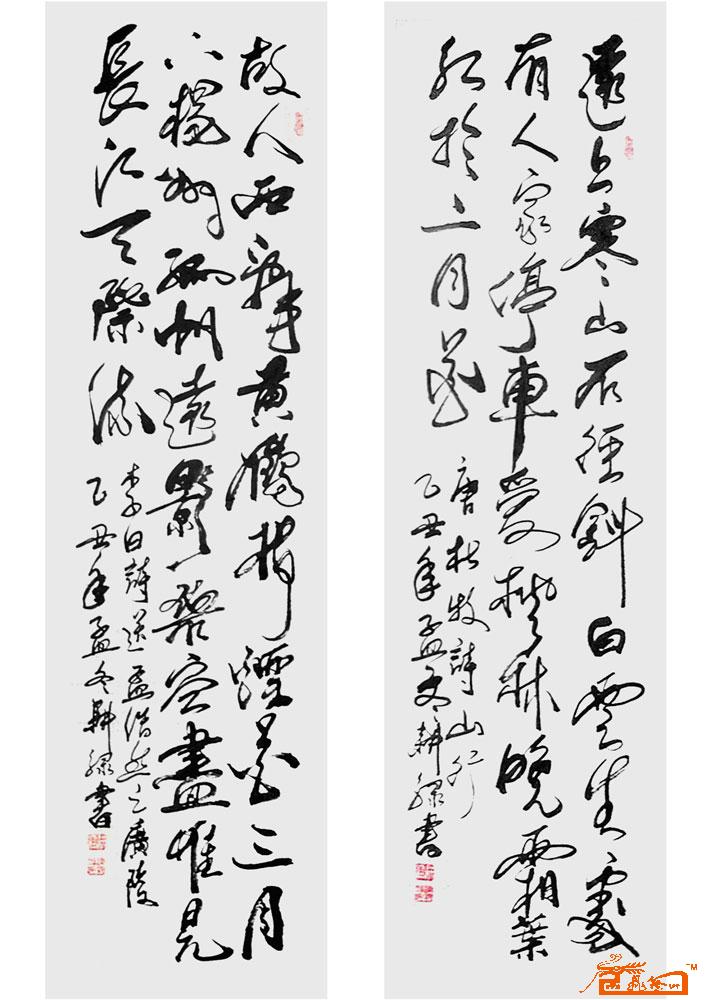 遠上寒山石徑斜白雲生處
有人家停車愛楓林晚霜葉
紅於二月花
唐杜牧詩山行
乙丑年孟冬耕書
故人西辭黃鶴樓煙花三月
下揚州孤帆遠影一碧空盡惟見
長江天際流
李白詩送孟浩然之廣陵
乙丑年孟冬耕書